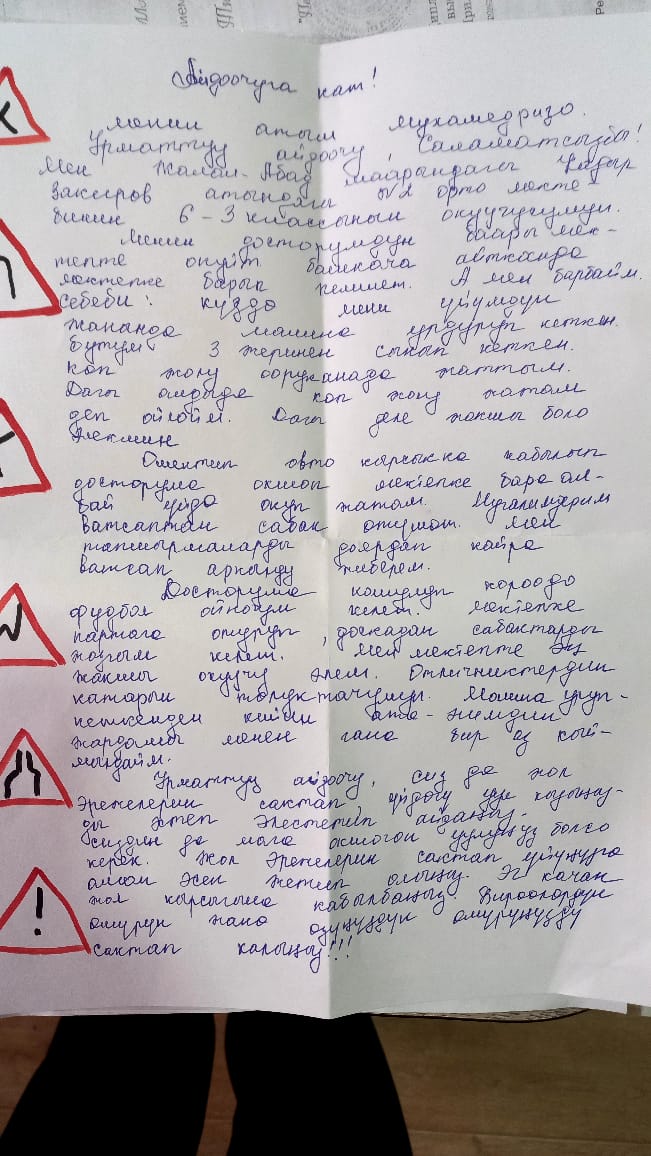 Айдоочуга кат!
Менин атым Мухамедризо.
Урматтуу айдоочу, Саламатсызбы!
Мен Жалал-Абад шаарындагы Кадыр
Закиров атындагы №2 орто мекте-
бинин 6-3 классынын окуучусумун.
Менин досторумдун баары мек-
тепте окуйт башкача айтканда
мектепке барып келишет. А мен барбайм.
Себеби: куздо мени уйумдун
жанында машина урдуруп кеткен.
Бутум 3 жеринен сынып кеткен.
Коп жолу ооруканада жаттым.
Дагы алдыда коп жолу жатам
деп ойлойм. Дагы деле жакшы боло
элекмин
Ошентип авто кырсыкка кабылып
досторума окшоп мектепке бара ал-
бай уйдо окуп жатам. Мугалимдерим
ватсаптан сабак отушот. Мен
тапшырмаларды даярдап кайра
ватсап аркылуу жиберем.
Досторума кошулуп короодо
фудбол ойногум келет. Мектепке
партага отуруп, доскадан сабактарды
жазгым келет. Мен мектепте эң
жакшы окуучу элем. Отличниктердин
катарын толуктачумун. Машина уруп-
кеткенден кийин ата-энемдин
жардамы менен гана бир аз кый-
мылдайм.
Урматтуу айдоочу, сиз да жол
Эрежелерин сактап, уйдогу уул кызыңыз-
ды эстеп Элестетип айдаңыз.
сиздин да мага окшогон уулуңуз болсо
керек. Жол Эрежелерин сактап уйуңузго
аман эсен жетип алыңыз. Эч качан
жол кырсыгына кабылбаңыз. Бироолордун
омурун жана озуңуздун омуруңузду
сактап калыңыз!!!